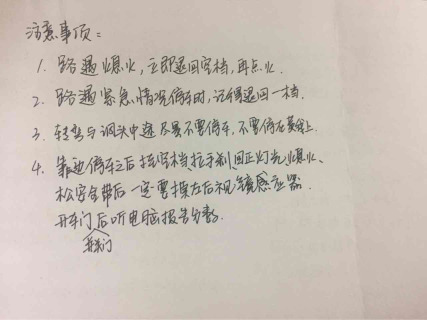 注意事项：
1. 路遇熄火，立即退回空档，再点火.
2. 路遇紧急情况停车时，记得退回一档.
3. 转弯与调头中途尽量不要停车，不要停在黄线上.
4. 靠边停车之后挂空档、拉手刹、回正灯光、熄火、
松安全带后一定要摸左后视镜感应器.
开车门后听电脑报告分数.
关车门